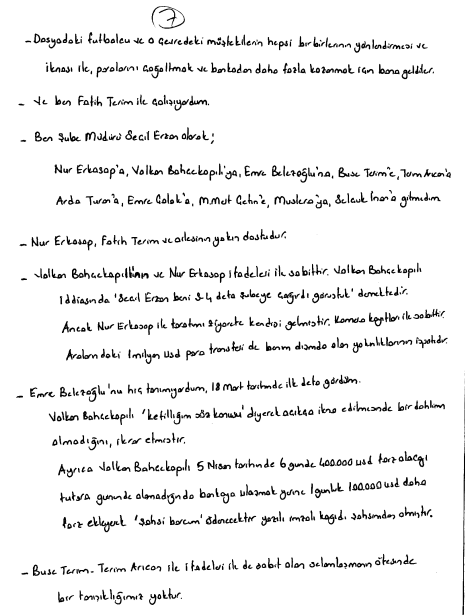 7
- Dosyadaki futbolcu ve o çevredeki müştekilerin hepsi birbirlerinin yönlendirmesi ve
iknası ile, paralarını çoğaltmak ve bankadan daha fazla kazanmak için bana geldiler.
- Ve ben Fatih Terim ile çalışıyordum.
- Ben Şube Müdürü Seçil Erzan olarak;
Nur Erkasap'a, Volkan Bahçekapılı'ya, Emre Belezoğlu'na, Buse Terim'e, Terim Arıcan'a
Arda Turan'a, Emre Çolak'a, Mert Çetin'e, Muslera'ya, Selçuk İnan'a gitmedim
- Nur Erkasap, Fatih Terim ve ailesinin yakın dostudur.
- Volkan Bahçekapılı'nın ve Nur Erkasap ifadeleri ile sabittir. Volkan Bahçekapılı
iddiasında 'Seçil Erzan beni 3-4 defa şubeye çağırdı görüştük' demektedir.
Ancak Nur Erkasap ile tarafımı ziyarete kendisi gelmiştir. Kamera kayıtları ile sabittir.
Aralarındaki 1 milyon usd para transferi de benim dışımda olan yakınlıklarının ispatıdır.
- Emre Belezoğlu'nu hiç tanımıyordum, 18 Mart tarihinde ilk defa gördüm.
Volkan Bahçekapılı 'kefilliğim söz konusu' diyerek açıkça ikna edilmesinde bir dahlim
olmadığını, ikrar etmiştir.
Ayrıca Volkan Bahçekapılı 5 Nisan tarihinde 6 günde 400.000 usd farz alacağı
tutarı gününde alamadığında bankaya ulaşmak yerine 1 günlük 100.000 usd daha
farz ekleyerek 'şahsi borcum' ödenecektir yazılı imzalı kağıdı şahsımdan almıştır.
- Buse Terim - Terim Arıcan ile ifadeleri ile de sabit olan selamlaşmanın ötesinde
bir tanışıklığımız yoktur.